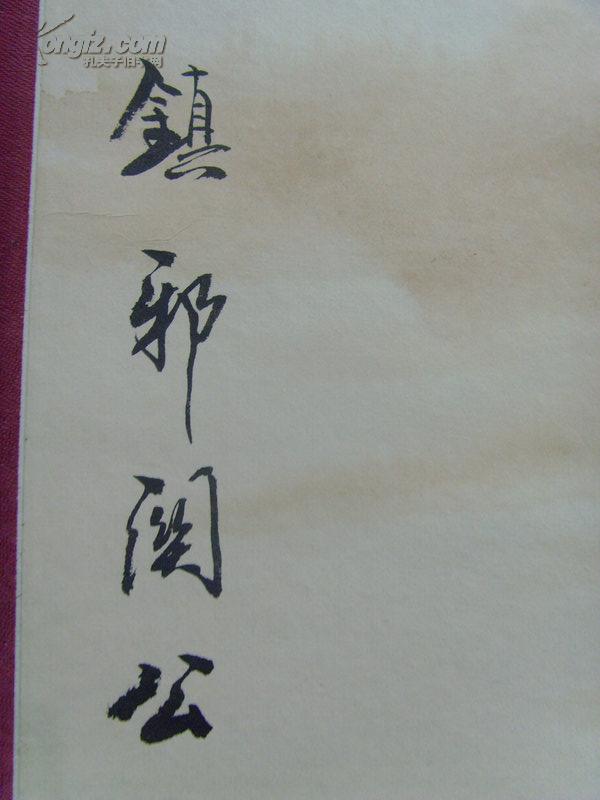 Kongfz.com
孔夫子旧书网
鎮邪関公